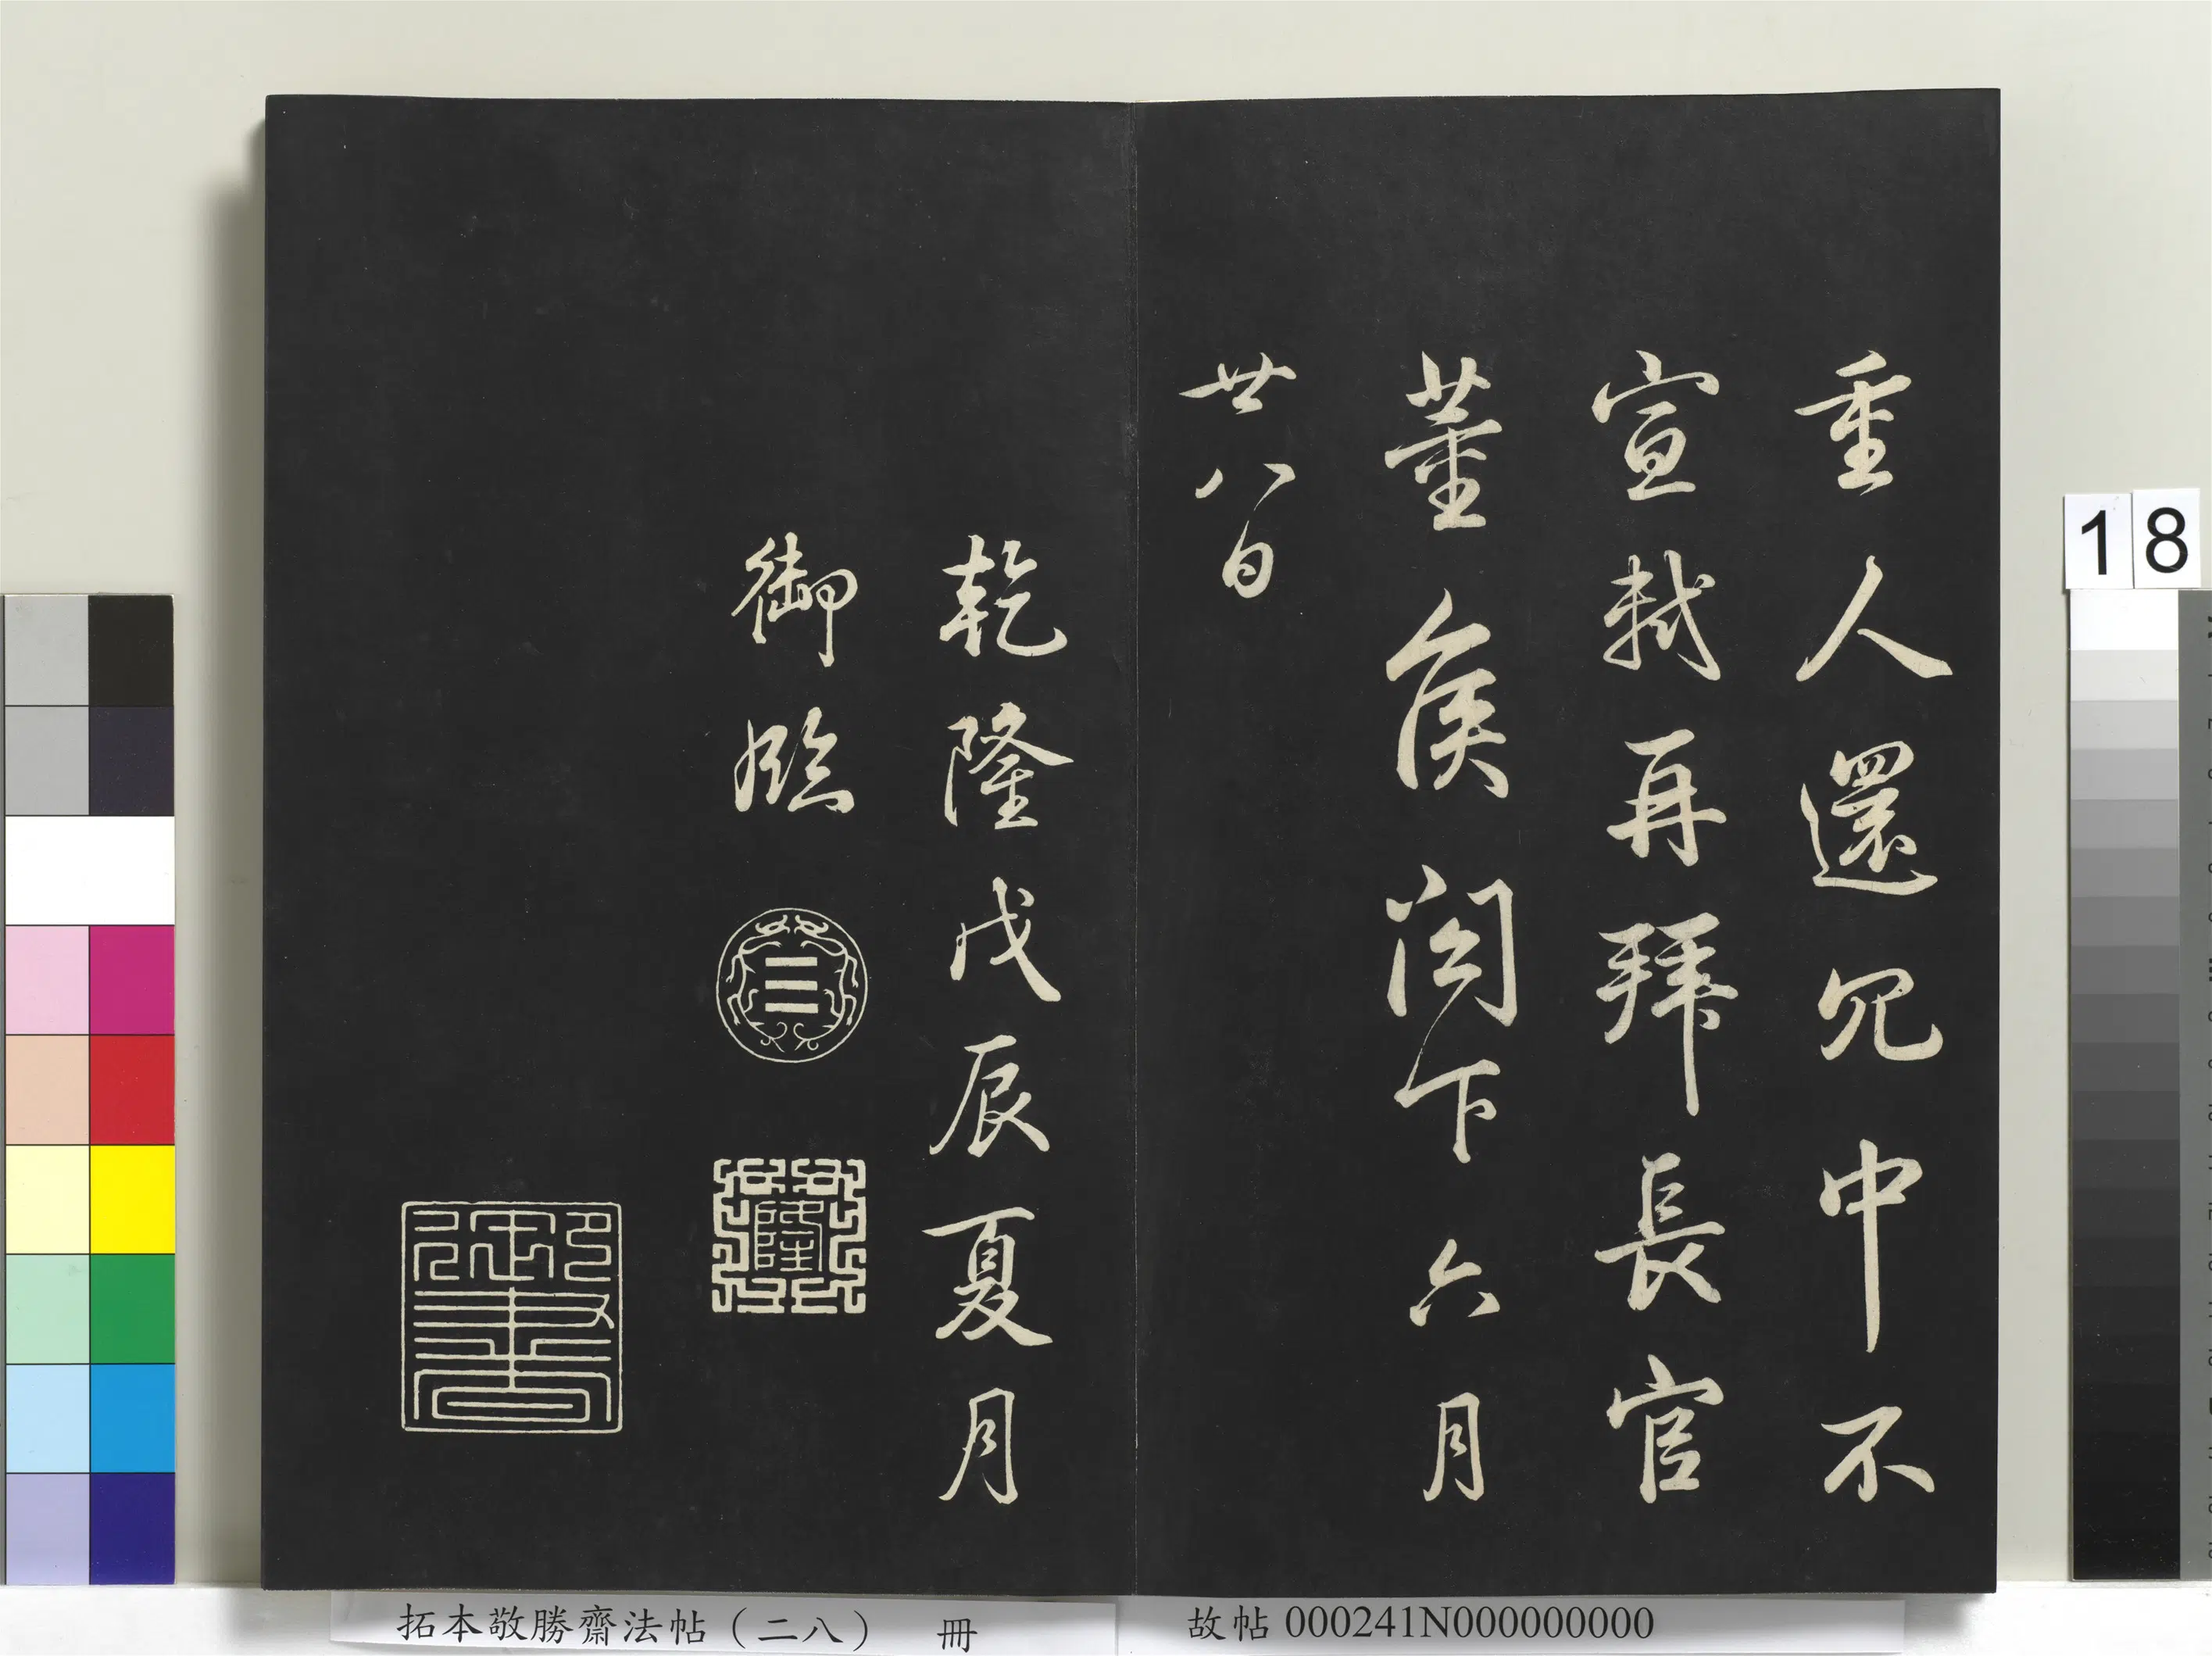 重人還冗中不
宣軾再拜長官
董侯閣下六月
廿八日
乾隆戊辰夏月
御臨
☰
乾隆
御書
18
拓本敬勝齋法帖（二八） 冊
故帖 000241N000000000